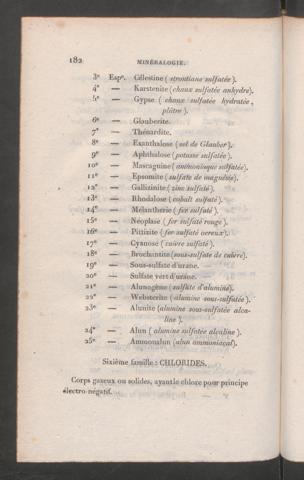 182 MINÉRALOGIE.
3e Espe. Célestine (strontiane sulfatée).
4e — Karstenite (chaux sulfatée anhydre).
5e — Gypse (chaux sulfatée hydratée,
plâtre).
6e — Glauberite.
7e — Thénardite.
8e — Exanthalose (sel de Glauber).
9e — Aphthalose (potasse sulfatée).
10e — Mascagnine (ammoniaque sulfatée).
11e — Epsomite (sulfate de magnésie).
12e — Gallizinite (zinc sulfaté).
13e — Rhodalose (cobalt sulfaté).
14e — Mélanterie (fer sulfaté).
15e — Néoplase (fer sulfaté rouge).
16e — Pittizite (fer sulfaté ocreux).
17e — Cyanose (cuivre sulfaté).
18e — Brochantite (sous-sulfate de cuivre).
19e — Sous-sulfate d'urane.
20e — Sulfate vert d'urane.
21e — Alunogène (sulfate d'alumine).
22e — Websterite (alumine sous-sulfatée).
23e — Alunite (alumine sous-sulfatée alca-
line).
24e — Alun (alumine sulfatée alcaline).
25e — Ammonalun (alun ammoniacal).
Sixième famille : CHLORIDES.
Corps gazeux ou solides, ayant le chlore pour principe
électro-négatif.